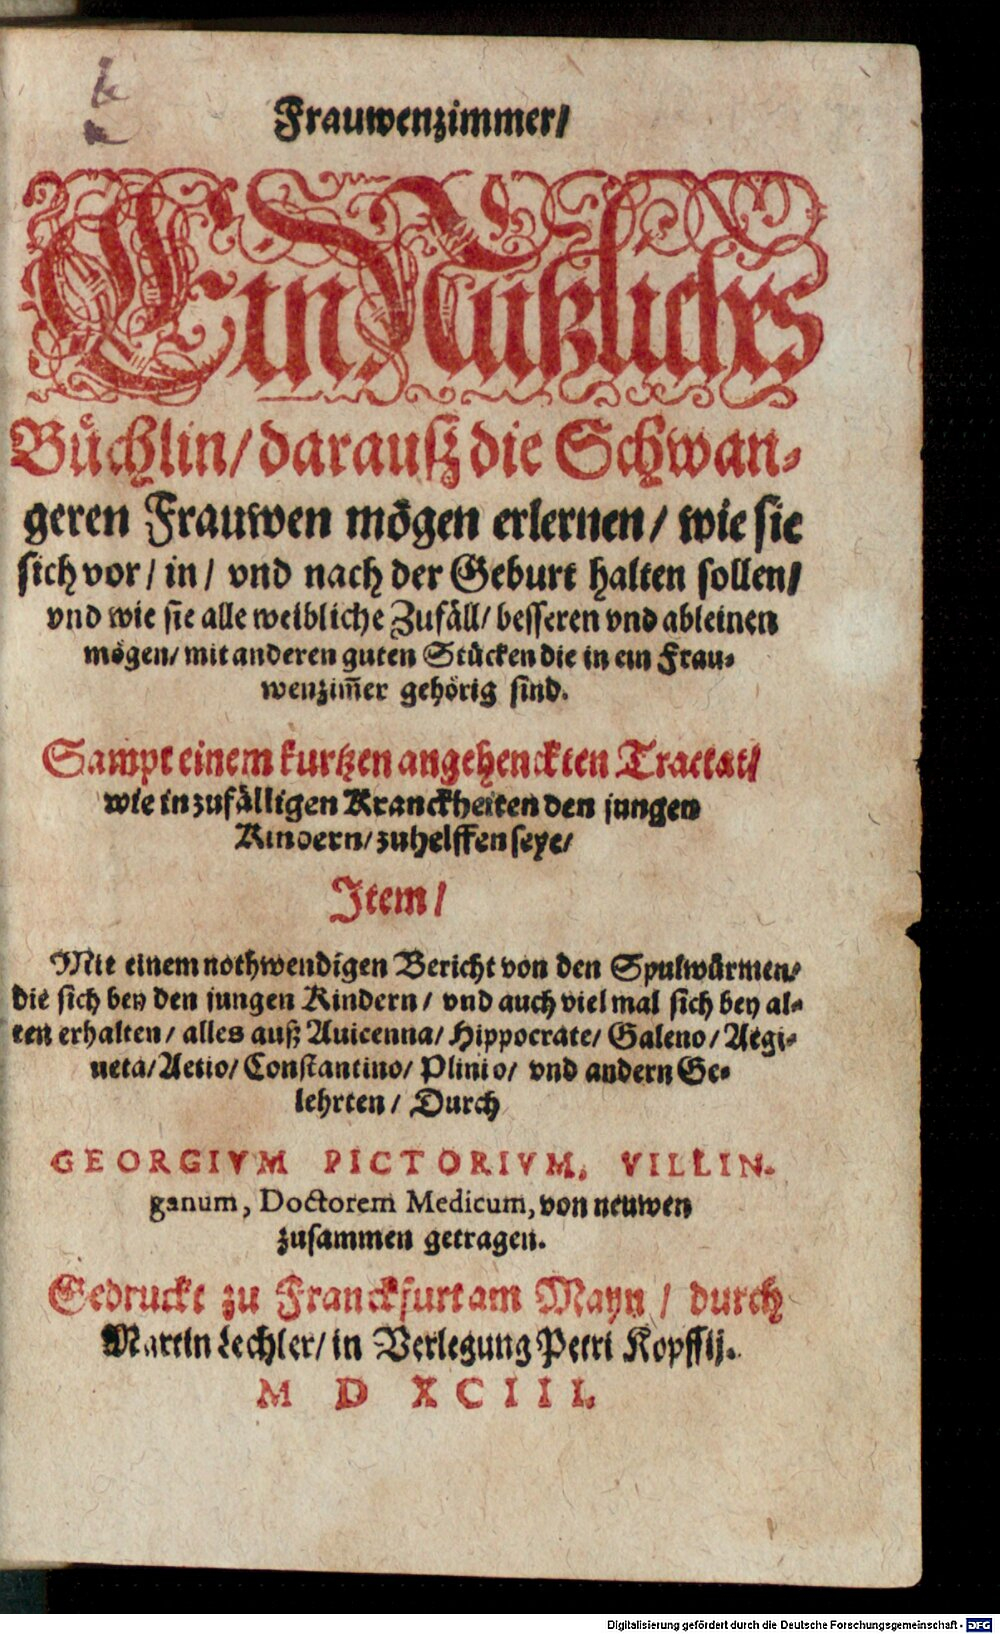 Frauwenzimmer/
Ein Nützlichs
Büchlin/ darauß die Schwan-
geren Frauwen mögen erlernen/ wie sie
sich vor/ in/ vnd nach der Geburt halten sollen/
vnd wie sie alle weibliche Zufäll/ besseren vnd ableinen
mögen/ mit anderen guten Stücken die in ein Frau-
wenzim̄er gehörig sind.
Sampt einem kurtzen angehenckten Tractat/
wie in zufälligen Kranckheiten den jungen
Kindern/ zuhelffen seye/
Item/
Mit einem nothwendigen Bericht von den Spulwürmen/
die sich bey den jungen Kindern/ vnd auch viel mal sich bey al-
ten erhalten/ alles auß Auicenna/ Hippocrate/ Galeno/ Aegi-
neta/ Aetio/ Constantino/ Plinio/ vnd andern Ge-
lehrten/ Durch
GEORGIVM PICTORIVM, VILLIN-
ganum, Doctorem Medicum, von neuwen
zusammen getragen.
Gedruckt zu Franckfurt am Mayn/ durch
Martin Lechler/ in Verlegung Petri Kopffij.
M D XCIII.
Digitalisierung gefördert durch die Deutsche Forschungsgemeinschaft - DFG